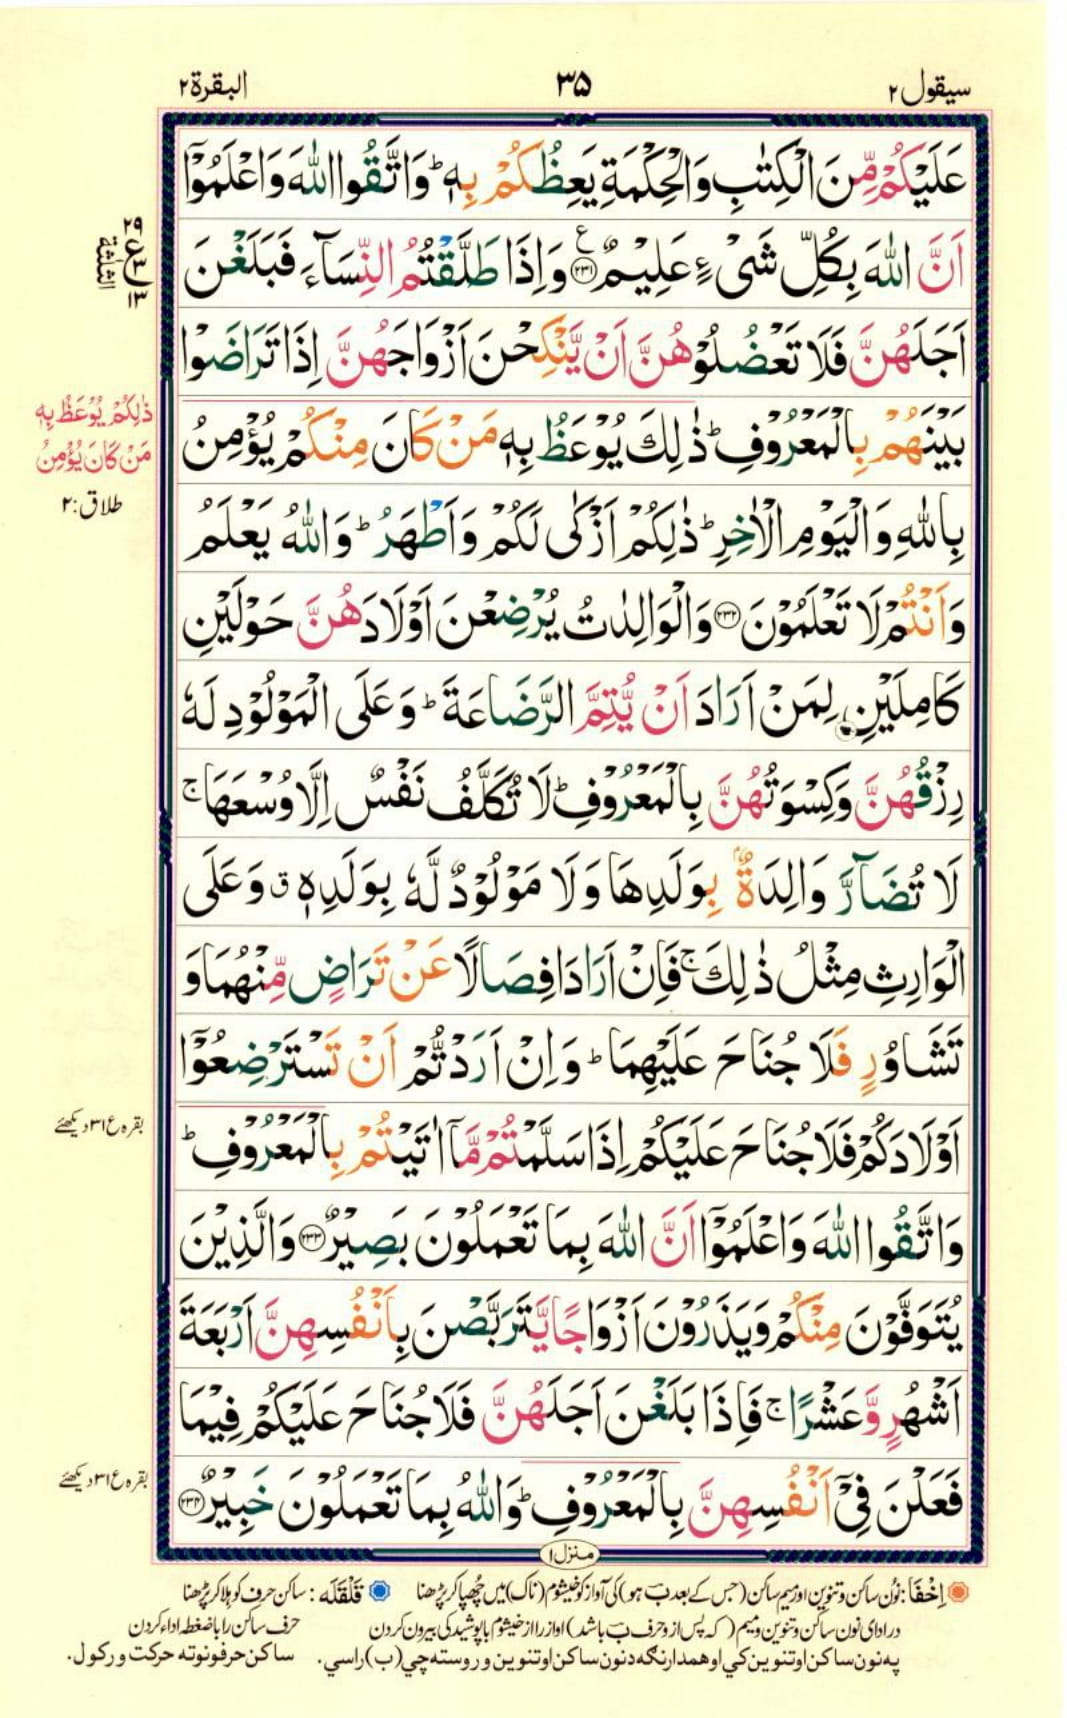 سیقول ۲
۳۵
البقرة ۲
عَلَيْكُمْ مِّنَ الْكِتٰبِ وَالْحِكْمَةِ يَعِظُكُمْ بِهٖ ؕ وَاتَّقُوا اللّٰهَ وَاعْلَمُوْۤا
اَنَّ اللّٰهَ بِكُلِّ شَیْءٍ عَلِيْمٌ ﴿۲۳۱﴾ ع وَاِذَا طَلَّقْتُمُ النِّسَآءَ فَبَلَغْنَ
۲۹
ع
۳
۱۳
الثلثة
اَجَلَهُنَّ فَلَا تَعْضُلُوْهُنَّ اَنْ يَّنْكِحْنَ اَزْوَاجَهُنَّ اِذَا تَرَاضَوْا
بَيْنَهُمْ بِالْمَعْرُوْفِ ؕ ذٰلِكَ يُوْعَظُ بِهٖ مَنْ كَانَ مِنْكُمْ يُؤْمِنُ
ذٰلِكُمْ يُوْعَظُ بِهٖ
مَنْ كَانَ يُؤْمِنُ
طلاق: ۲
بِاللّٰهِ وَالْيَوْمِ الْاٰخِرِ ؕ ذٰلِكُمْ اَزْكٰى لَكُمْ وَاَطْهَرُ ؕ وَاللّٰهُ يَعْلَمُ
وَاَنْتُمْ لَا تَعْلَمُوْنَ ﴿۲۳۲﴾ وَالْوَالِدٰتُ يُرْضِعْنَ اَوْلَادَهُنَّ حَوْلَيْنِ
كَامِلَيْنِ لِمَنْ اَرَادَ اَنْ يُّتِمَّ الرَّضَاعَةَ ؕ وَعَلَى الْمَوْلُوْدِ لَهٗ
رِزْقُهُنَّ وَكِسْوَتُهُنَّ بِالْمَعْرُوْفِ ؕ لَا تُكَلَّفُ نَفْسٌ اِلَّا وُسْعَهَا ۚ
لَا تُضَآرَّ وَالِدَةٌۢ بِوَلَدِهَا وَلَا مَوْلُوْدٌ لَّهٗ بِوَلَدِهٖ ق وَعَلَى
الْوَارِثِ مِثْلُ ذٰلِكَ ۚ فَاِنْ اَرَادَا فِصَالًا عَنْ تَرَاضٍ مِّنْهُمَا وَ
تَشَاوُرٍ فَلَا جُنَاحَ عَلَيْهِمَا ؕ وَاِنْ اَرَدْتُّمْ اَنْ تَسْتَرْضِعُوْۤا
اَوْلَادَكُمْ فَلَا جُنَاحَ عَلَيْكُمْ اِذَا سَلَّمْتُمْ مَّاۤ اٰتَيْتُمْ بِالْمَعْرُوْفِ ؕ
بقرہ ع ۳۱ دیکھئے
وَاتَّقُوا اللّٰهَ وَاعْلَمُوْۤا اَنَّ اللّٰهَ بِمَا تَعْمَلُوْنَ بَصِيْرٌ ﴿۲۳۳﴾ وَالَّذِيْنَ
يُتَوَفَّوْنَ مِنْكُمْ وَيَذَرُوْنَ اَزْوَاجًا يَّتَرَبَّصْنَ بِاَنْفُسِهِنَّ اَرْبَعَةَ
اَشْهُرٍ وَّعَشْرًا ۚ فَاِذَا بَلَغْنَ اَجَلَهُنَّ فَلَا جُنَاحَ عَلَيْكُمْ فِيْمَا
فَعَلْنَ فِیْۤ اَنْفُسِهِنَّ بِالْمَعْرُوْفِ ؕ وَاللّٰهُ بِمَا تَعْمَلُوْنَ خَبِيْرٌ ﴿۲۳۴﴾
بقرہ ع ۳۱ دیکھئے
منزل ۱
اِخْفَا: نون ساکن و تنوین اور میم ساکن (جس کے بعد بَ ہو) کی آواز کو خیشوم (ناک) میں چُھپا کر پڑھنا
قَلْقَلَه: ساکن حرف کو ہلا کر پڑھنا
در ادای نون ساکن و تنوین و میم (که پس ازو حرف بَ باشد) آواز را از خیشوم با پوشیدگی بیرون کردن
حرف ساکن را با ضغطه ادا کردن
په نون ساکن او تنوین کي او همدارنګه د نون ساکن او تنوین وروسته چي (ب) راسي.
ساکن حرفونو ته حرکت ورکول.